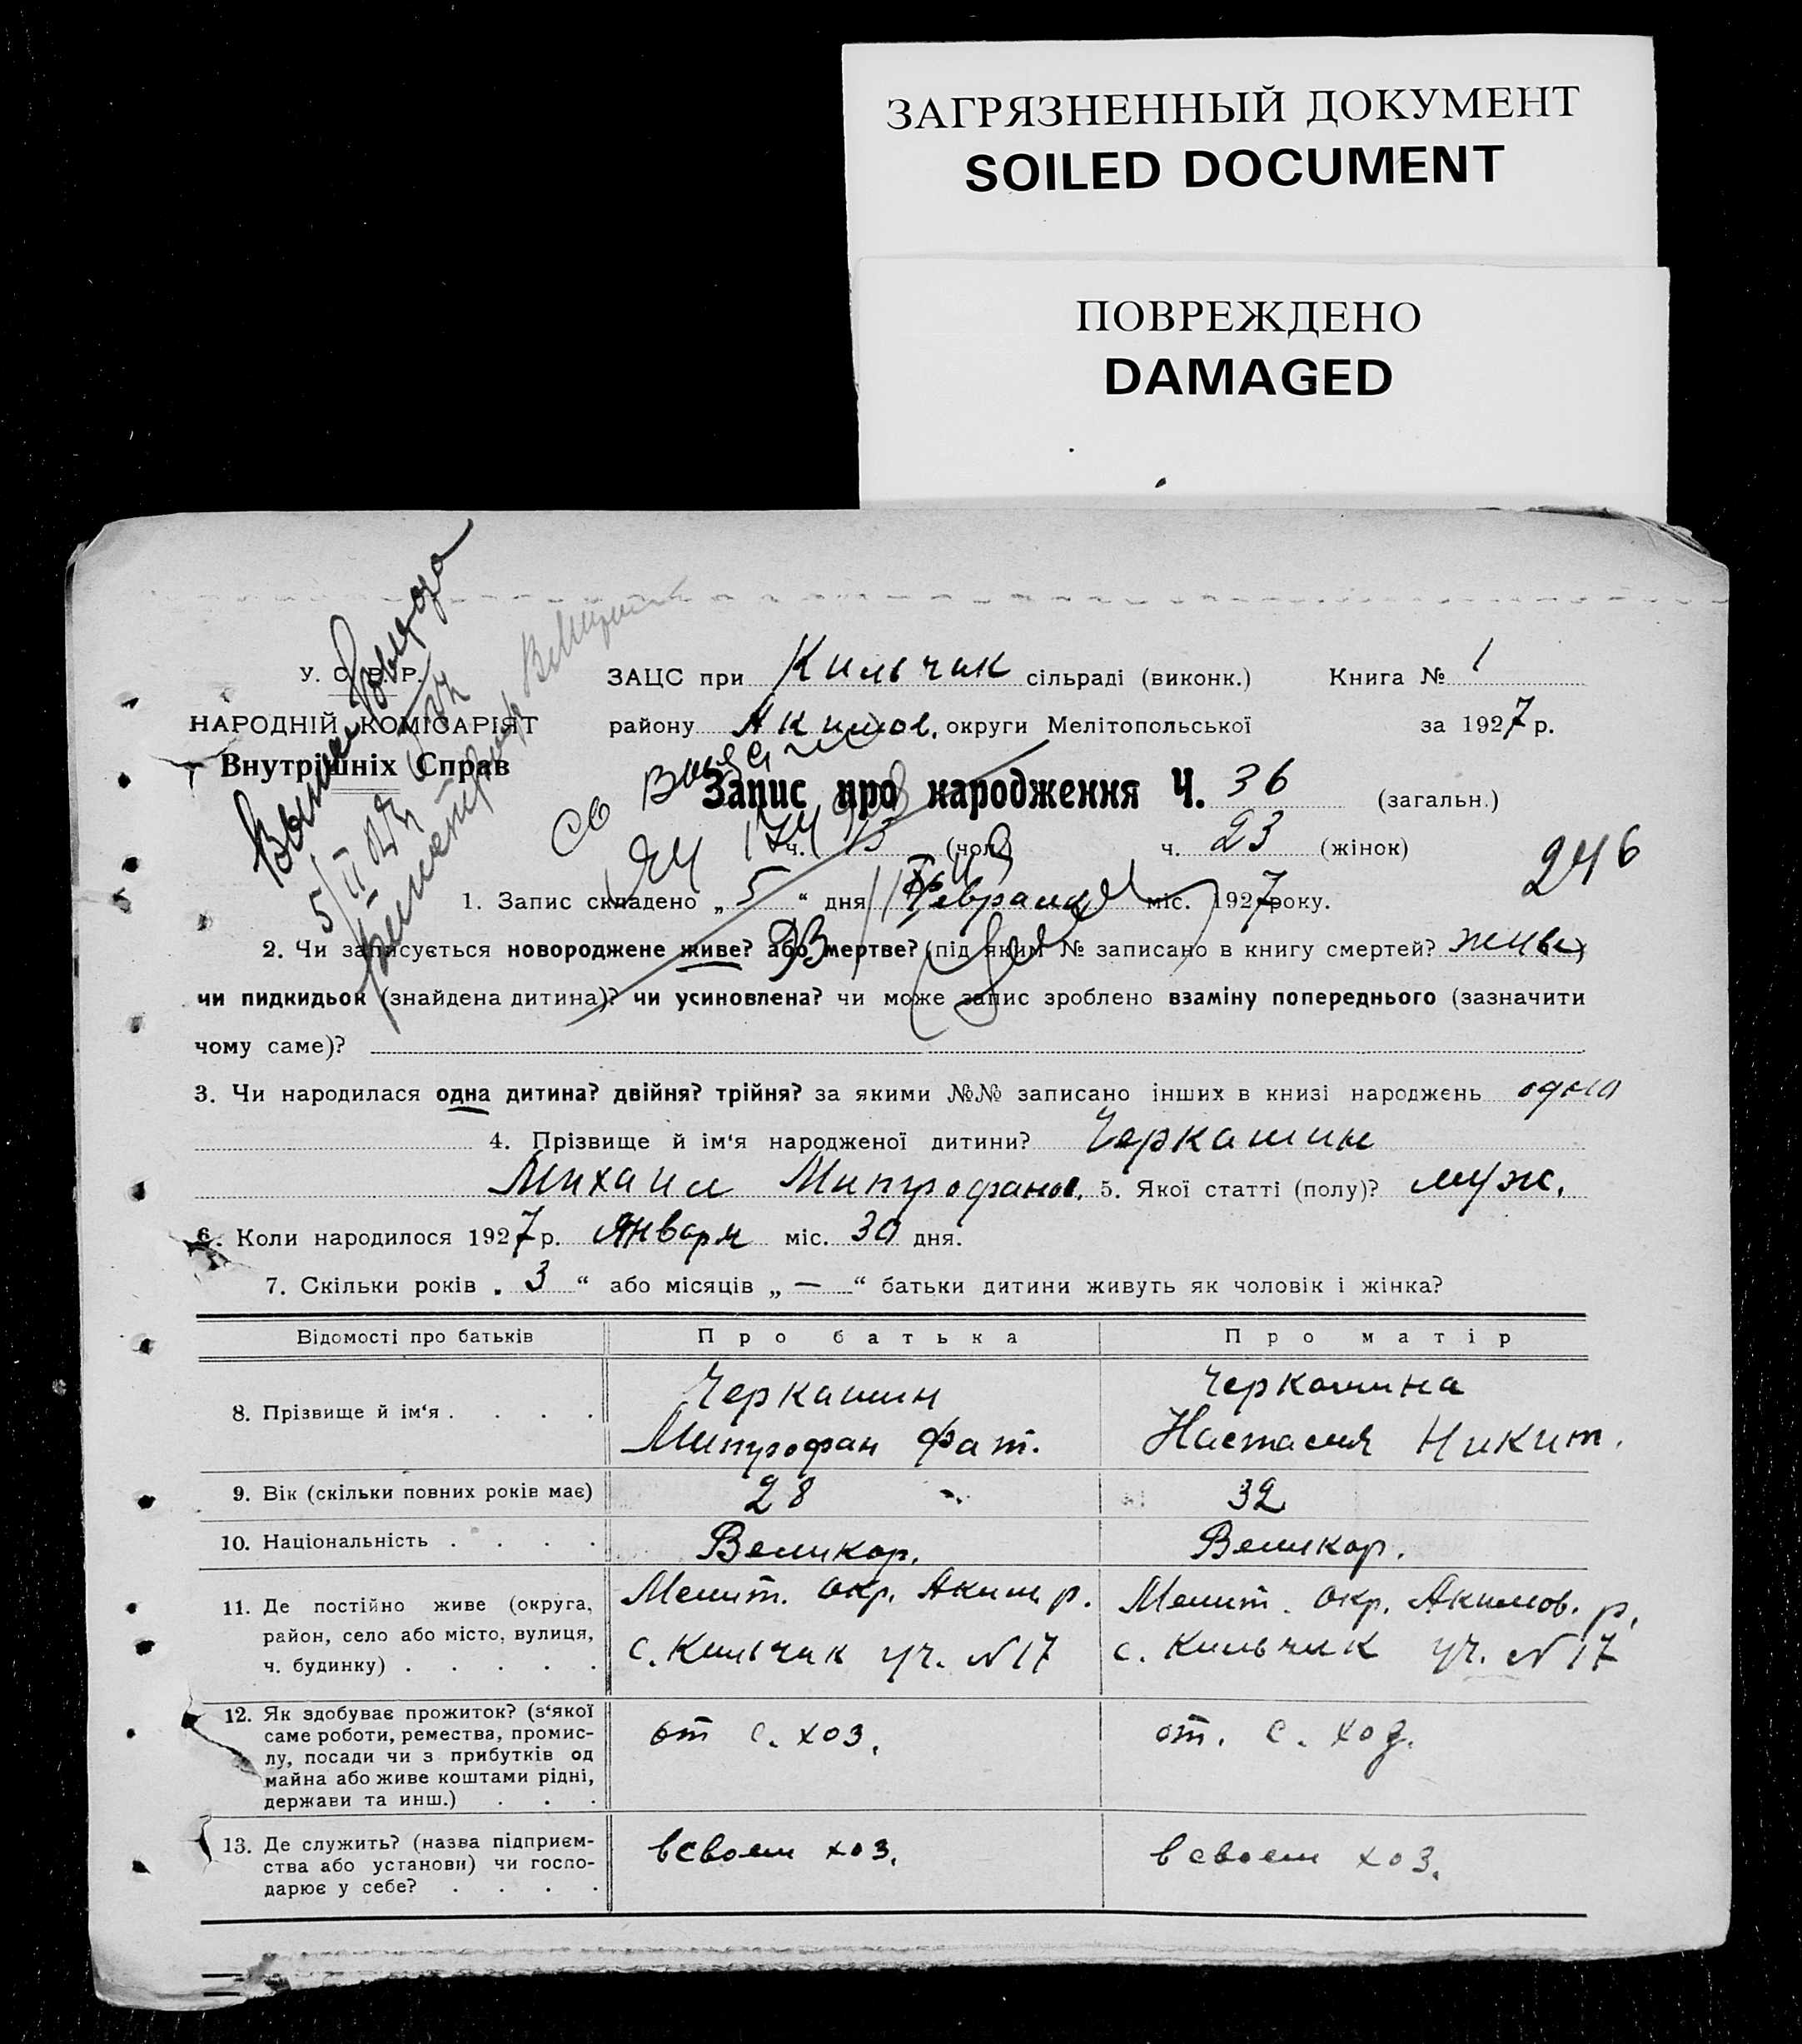 ЗАГРЯЗНЕННЫЙ ДОКУМЕНТ
SOILED DOCUMENT
ПОВРЕЖДЕНО
DAMAGED
У. С. Р. Р.
НАРОДНІЙ КОМІСАРІЯТ
Внутрішніх Справ
ЗАЦС при Кильчик сільраді (виконк.) Книга № 1
району Акимов. округи Мелітопольської за 1927 р.
Запис про народження Ч. 36 (загальн.)
ч. 13 (чол.) ч. 23 (жінок)
246
1. Запис складено „ 5 “ дня Февраля міс. 1927 року.
2. Чи записується новороджене живе? або мертве? (під яким № записано в книгу смертей? живе)
чи пидкидьок (знайдена дитина)? чи усиновлена? чи може запис зроблено взаміну попереднього (зазначити
чому саме)?
3. Чи народилася одна дитина? двійня? трійня? за якими №№ записано інших в книзі народжень одна
4. Прізвище й ім‘я народженої дитини? Черкашин
Михаил Митрофанов. 5. Якої статті (полу)? муж.
6. Коли народилося 1927 р. Января міс. 30 дня.
7. Скільки років „ 3 “ або місяців „ — “ батьки дитини живуть як чоловік і жінка?
Відомості про батьків Про батька Про матір
8. Прізвище й ім‘я . . . . Черкашин Митрофан Фат. Черкашина Настасия Никит.
9. Вік (скільки повних років має) 28 32
10. Національність . . . . Великор. Великор.
11. Де постійно живе (округа, Мелит. окр. Аким р. Мелит. окр. Акимов. р.
район, село або місто, вулиця, с. Кильчик уч. N 17 с. Кильчик уч. N 17
ч. будинку) . . . . .
12. Як здобуває прожиток? (з‘якої
саме роботи, ремества, промис- от с. хоз. от. с. хоз.
лу, посади чи з прибутків од
майна або живе коштами рідні,
держави та инш.) . . .
13. Де служить? (назва підприєм- всвоем хоз. всвоем хоз.
ства або установи) чи госпо-
дарює у себе? . . . .